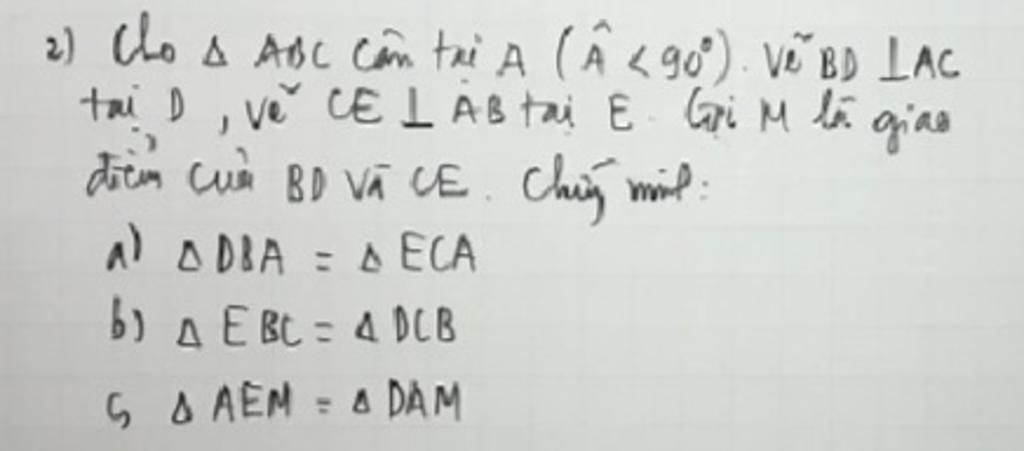 2) Cho Δ ABC cân tại A (Â < 90°). Vẽ BD ⊥ AC
tại D, vẽ CE ⊥ AB tại E. Gọi M là giao
điểm của BD và CE. Chứng minh:
a) Δ DBA = Δ ECA
b) Δ EBC = Δ DCB
c) Δ AEM = Δ DAM